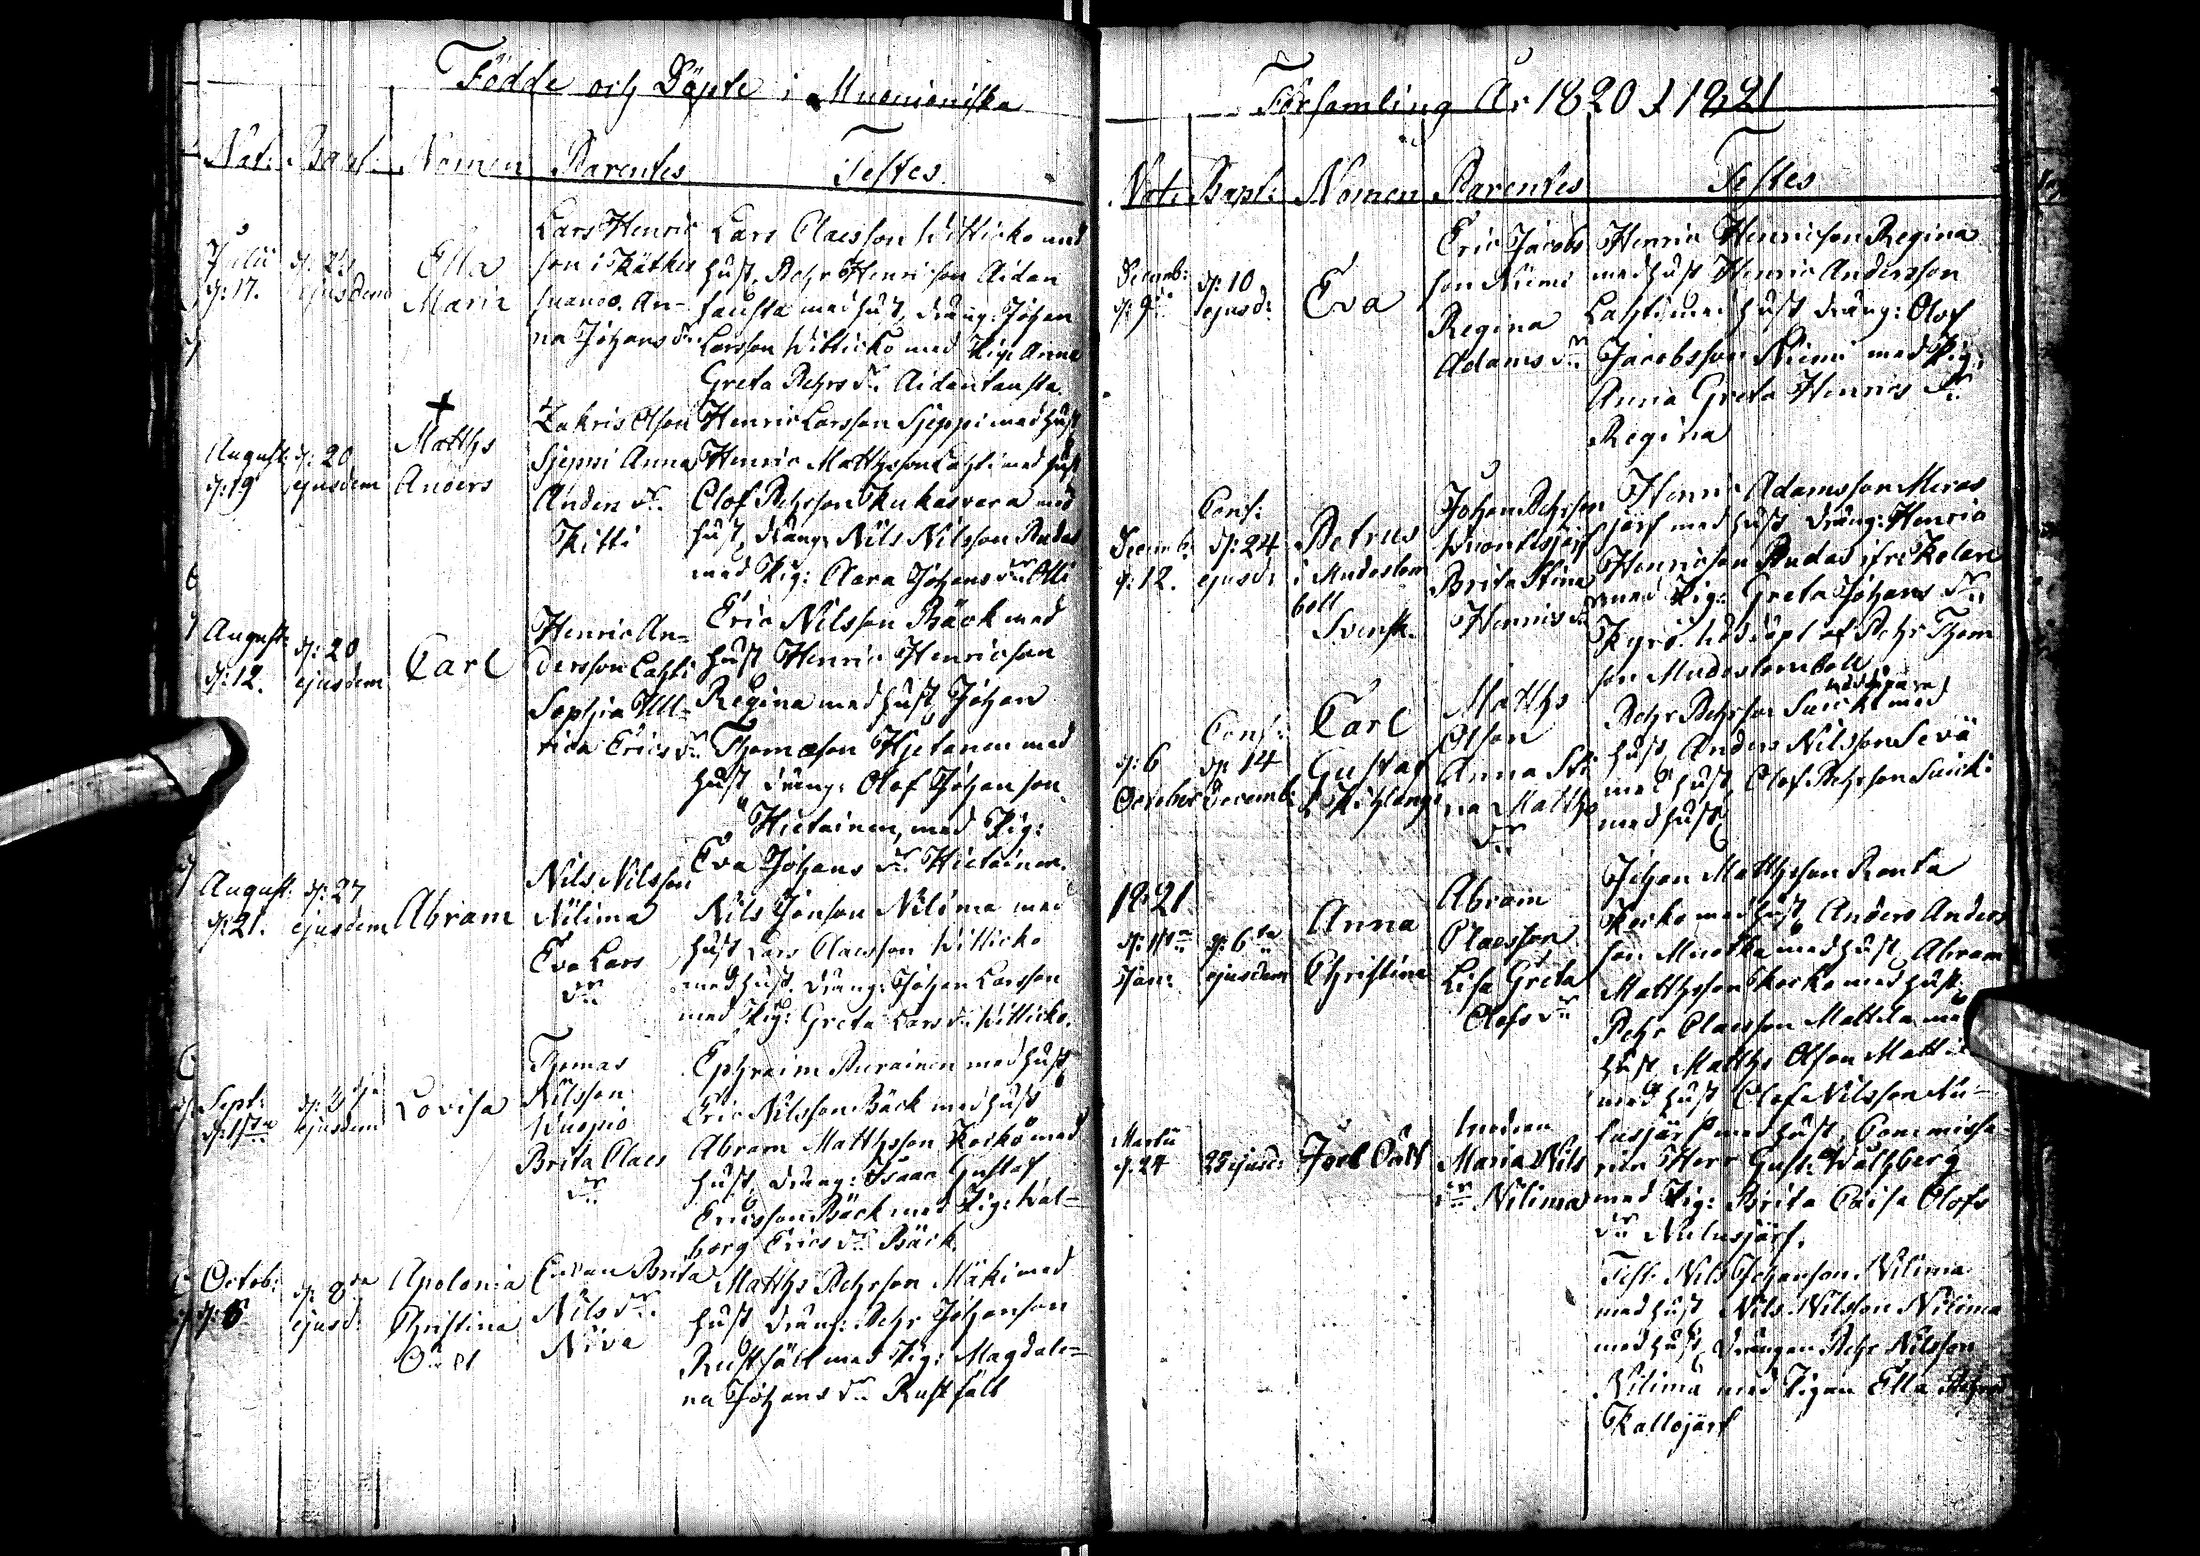 Födde och Döpte i Muonioniska
Nat: Bapt: Nomen Parentes Testes
Julii d: 17. d: 23 ejusdem
Ella Maria
Lars Henric
son i Kätkes
suando. An-
na Johans dr
Lars Claesson Witticko med
hust. Pehr Henricson Aidan
tausta med hust, dräng: Johan
Larsson Witticko med Pig: Anna
Greta Pehrs dr. Aidantausta.
August: d: 19 d: 20 ejusdem
Matths
Anders
Zakris Olson
Sjeppi Anna
Anders dr.
Kitti
Henric Larsson Sjeppi med hust
Henric Matthsson Lahti med hust
Olof Pehrsson Kukasvara med
hust, dräng: Nils Nilsson Rudas
med Pig: Clara Johans dr Olli
August: d: 12. d: 20 ejusdem
Carl
Henric An-
dersson Lahti
Sophia Ull-
rica Erics dr
Eric Nilsson Bäck med
hust Henric Henricson
Regina med hust, Johan
Thomason Hjetanen med
hust dräng: Olof Johanson
Hietainen, med Pig:
Eva Johans dr. Hietainen.
August: d: 21. d: 27 ejusdem
Abram
Nils Nilsson
Nilima
Eva Lars
dr.
Nils Jonson Nilima med
hust Lars Claesson Witticko
med hust. dräng: Johan Larsson
med Pig: Greta Lars dr. Witticko.
Sept: ejusdem
Lovisa
Thomas
Nilsson
Kuopio
Brita Claes
dr.
Ephraim Purainen med hust
Eric Nilsson Bäck med hust
Abram Matthsson Kerko med
hust, dräng: Isaac Gustaf
Ericsson Bäck med Pig: Wal-
borg Erics dr. Bäck.
Octob: d: 6 d: 8de ejusd:
Apolonia
Christina
Brita
Nils dr.
Niva
Matths Pehrson Mäki med
hust dräng: Pehr Johanson
Rustfält med Pig: Magdale-
na Johans dr Rustfält
Församling År 1820 & 1821
Nat: Bapt: Nomen Parentes Testes
Decemb: d: 9de d: 10 ejusd:
Eva
Eric Jacobs
son Niemi
Regina
Adams dr
Henric Henricson Regina
med hust Henric Andersson
Lahti med hust dräng: Olof
Jacobsson Niemi med Pig:
Anna Greta Henrics dr
Regina
Decemb: d: 12. Conf: d: 24 ejusd:
Petrus
i Mudoslom
boll
Svensk.
Johan Pehrson
Brita Stina
Henrics dr
Henric Adamsson Meras
järf med hust dräng: Henric
Henricson Rudas ifr Kolare
med Pig: Greta Johans dr
Kyrö. Nöddöpt af Pehr Thom
son Mudoslombolo
d: 6 October Conf: d: 14 Decemb:
Carl
Gustaf
i Kihlangi
Matths
Olson
Anna Sti
na Matths
dr
Pehr Pehrson Suicki med
hust, Anders Nilsson Levä
med hust, Olof Pehrson Suick:
med hust
1821
d: 1sta Jan: d: 6ta ejusdem
Anna
Christina
Abram
Claesson
Lisa Greta
Olofs dr
Johan Matthsson Ranta
Kerko med hust, Anders Anders
son Muotka med hust, Abram
Matthsson Kerko med hust
Pehr Claesson Mattila med
hust, Matths Olson Mattila
med hust Olof Nilsson Nu-
lusjärf med hust, Commissa-
rien Herr Gust: Wallberg
med Pig: Brita Caisa Olofs
dr Nulusjärf.
Martii d: 24 25 ejusd:
Joel
Modren
Maria Nils
dr Nilima
Test: Nils Johanson Nilima
med hust, Nils Nilsson Nilima
med hust, drängen Pehr Nilsson
Nilima med Pigan Ella
Kallojärf